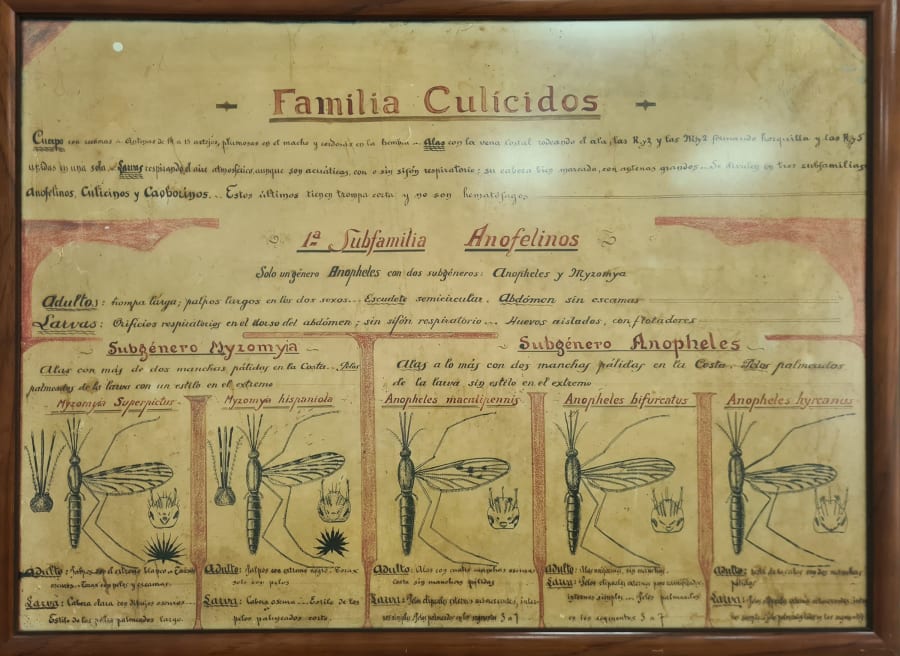 Familia Culícidos
Cuerpo con escamas ... Antenas de 14 a 15 artejos, plumosas en el macho y cerdosas en la hembra ... Alas con la vena costal rodeando el ala, las R₂y₃ y las M₁y₂ formando horquilla y las R₄y5
unidas en una sola ... Larvas respirando el aire atmosférico, aunque son acuáticas, con o sin sifón respiratorio; su cabeza bien marcada, con antenas grandes ... Se dividen en tres subfamilias
Anofelinos, Culicinos y Caoborinos... Estos últimos tienen trompa corta y no son hematófagos
1ª Subfamilia Anofelinos
Solo un género Anopheles con dos subgéneros: Anopheles y Myzomya
Adultos: trompa larga; palpos largos en los dos sexos... Escudete semicircular. Abdómen sin escamas
Larvas: Orificios respiratorios en el dorso del abdómen; sin sifón respiratorio... Huevos aislados, con flotadores
Subgénero Myzomyia
Alas con más de dos manchas pálidas en la Costa... Pelos
palmeados de la larva con un estilo en el extremo
Subgénero Anopheles
Alas a lo más con dos manchas pálidas en la Costa. Pelos palmeados
de la larva sin estilo en el extremo
Myzomyia Superpictus
Myzomyia hispaniola
Anopheles maculipennis
Anopheles bifurcatus
Anopheles hyrcanus
Adulto: Palpos con el extremo blanco ... Torax
escamas
Larva: Cabeza clara con dibujos oscuros...
Estilo de los pelos palmeados largo.
Adulto: Palpos con extremo negro. Torax
solo con pelos
Larva: Cabeza oscura ... Estilo de los
pelos palmeados corto.
Adulto: Alas con cuatro manchas oscuras
Costa sin manchas pálidas
Larva: Pelos clipeales externos ramificados, inter-
nos simples. Pelos palmeados en los segmentos 3 a 7
Adulto: Alas sin manchas
Larva: Pelos clipeales externos
internos simples ... Pelos palmeados
en los segmentos 3 a 7
Adulto: con dos manchas
pálidas
Larva: Pelos clipeales externos